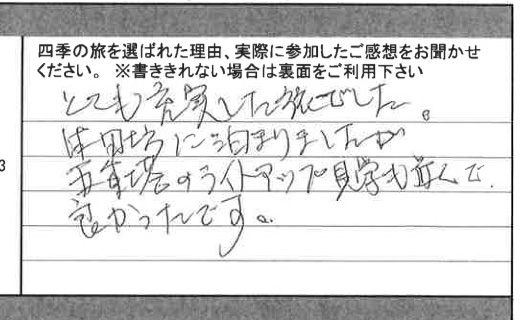 四季の旅を選ばれた理由、実際に参加したご感想をお聞かせ
ください。 ※書ききれない場合は裏面をご利用下さい
3
とても充実した旅でした。
に泊まりましたが
五重塔のライトアップ見学も
良かったです。